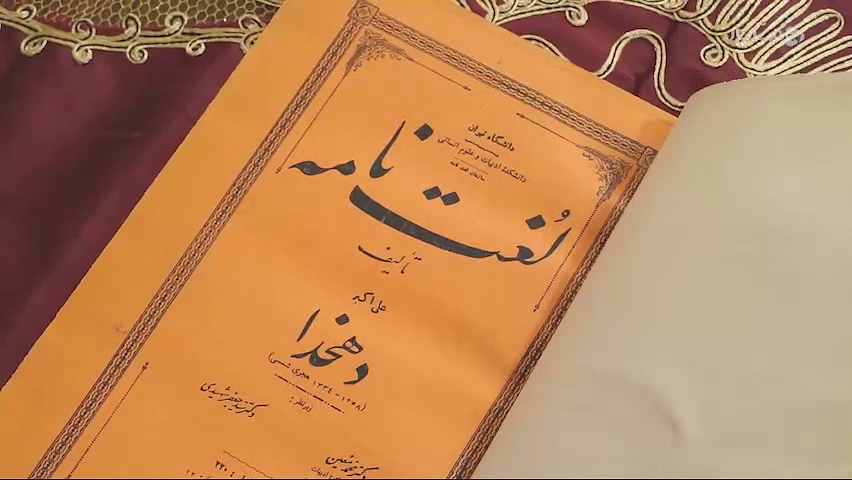 دانشگاه تهران
دانشکدهٔ ادبیات و علوم انسانی
سازمان لغت نامه
لغت نامه
تألیف
علی‌اکبر
دهخدا
(۱۲۵۸ - ۱۳۳۴ هجری شمسی)
زیر نظر :
دکتر محمد معین
دکتر سید جعفر شهیدی